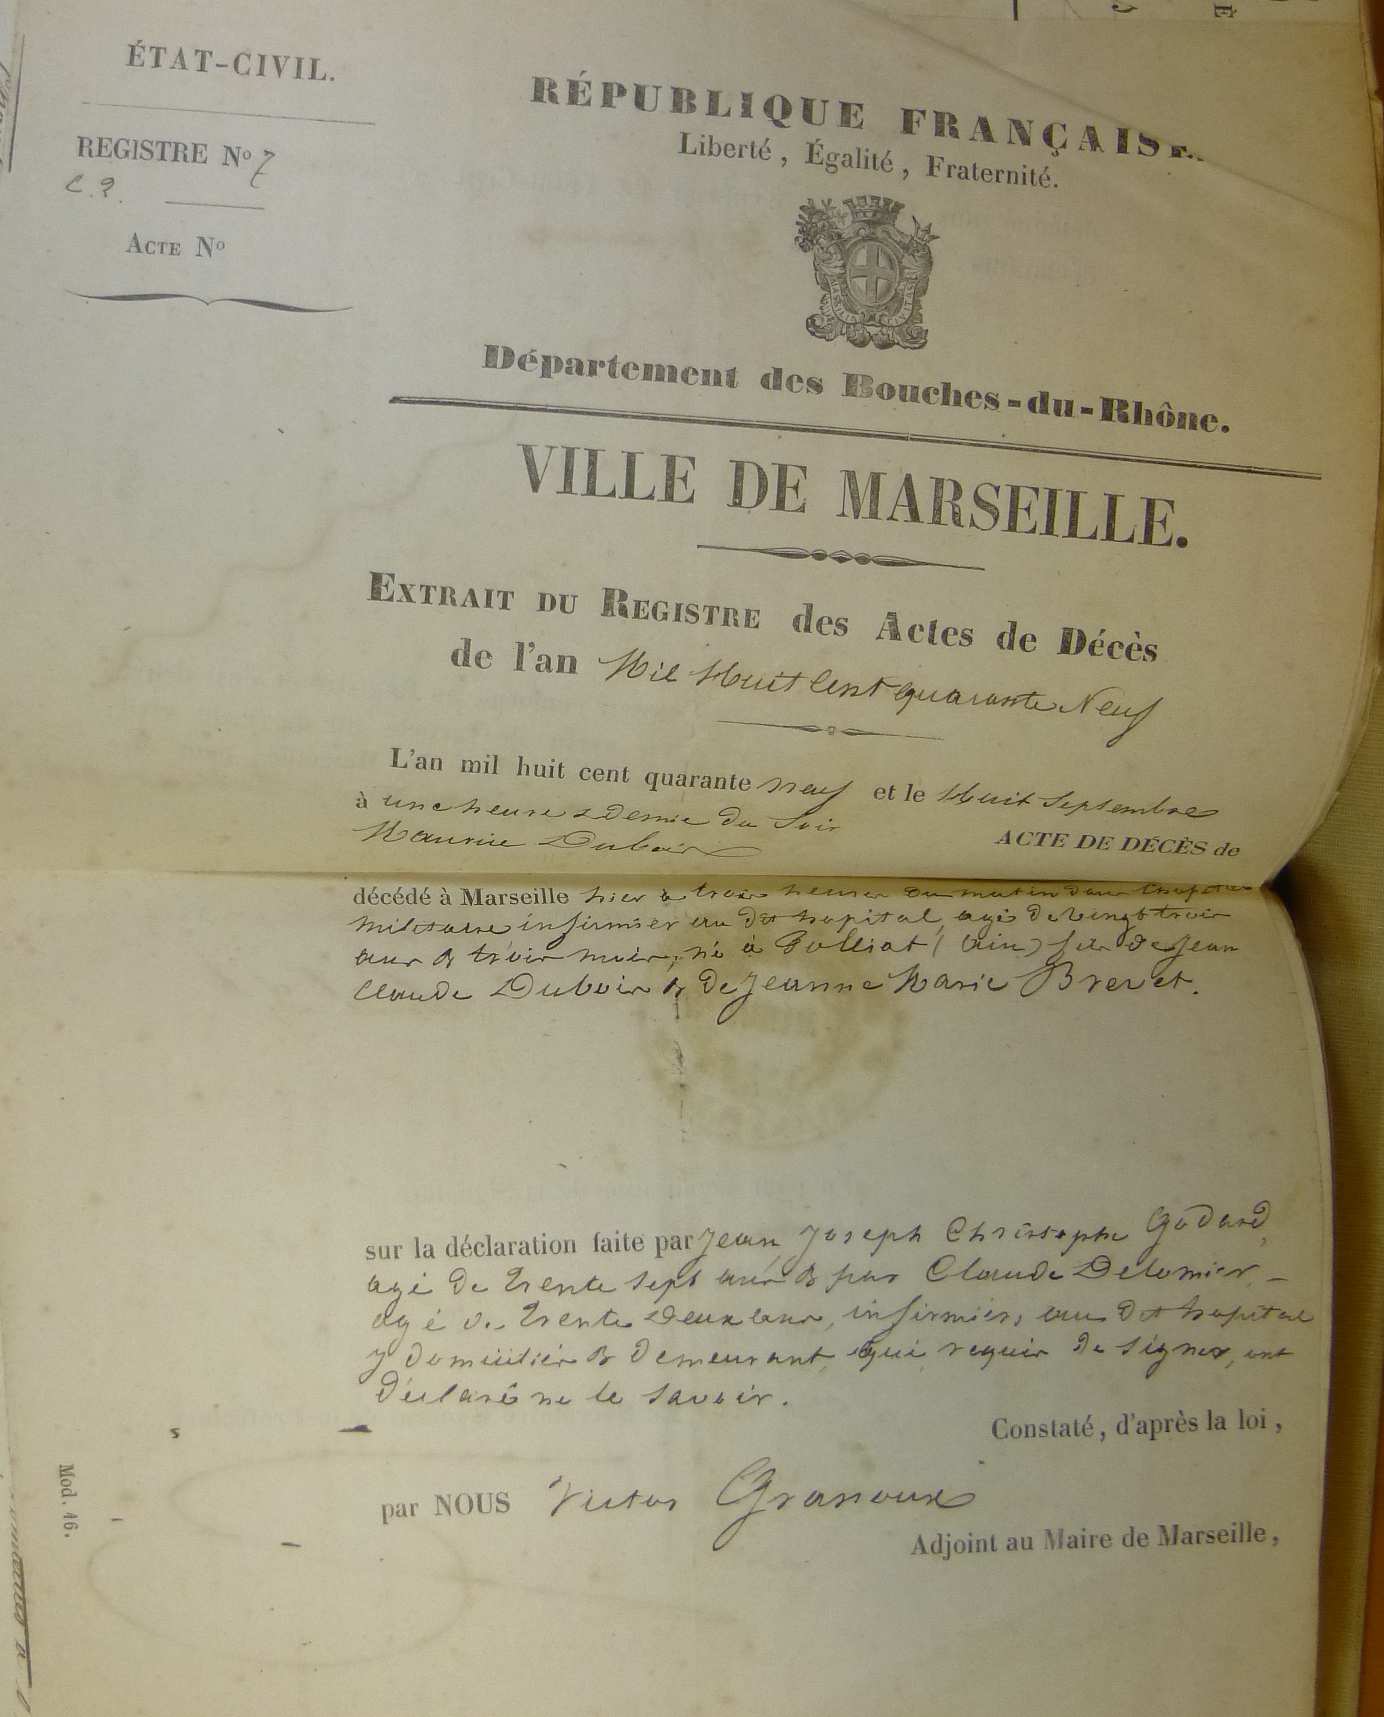 ÉTAT-CIVIL.
REGISTRE Nº 7
Acte Nº
RÉPUBLIQUE FRANÇAISE.
Liberté, Égalité, Fraternité.
Département des Bouches-du-Rhône.
VILLE DE MARSEILLE.
Extrait du Registre des Actes de Décès
de l'an Mil Huit Cent quarante Neuf
L'an mil huit cent quarante neuf et le Huit Septembre
à une heure & demie du Soir
ACTE DE DÉCÈS de
Maurice Dubois
décédé à Marseille hier à trois heures du matin dans l'hopital
militaire infirmier au dit hopital, agé de vingt trois
ans & trois mois, né à Polliat (Ain) fils de Jean
Claude Dubois & de Jeanne Marie Brevet.
sur la déclaration faite par Jean Joseph Christophe Godard,
agé de trente sept ans & par Claude Delomier
agé de trente deux ans, infirmiers au dit hopital
y domiciliés & demeurant, qui, requis de signer, ont
déclaré ne le savoir.
Constaté, d'après la loi,
par NOUS Victor Granoux
Adjoint au Maire de Marseille,
Mod. 46.